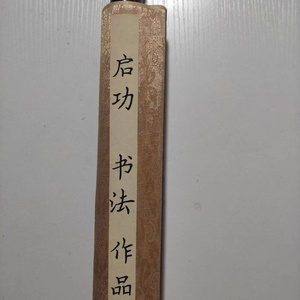 启功 书法作品